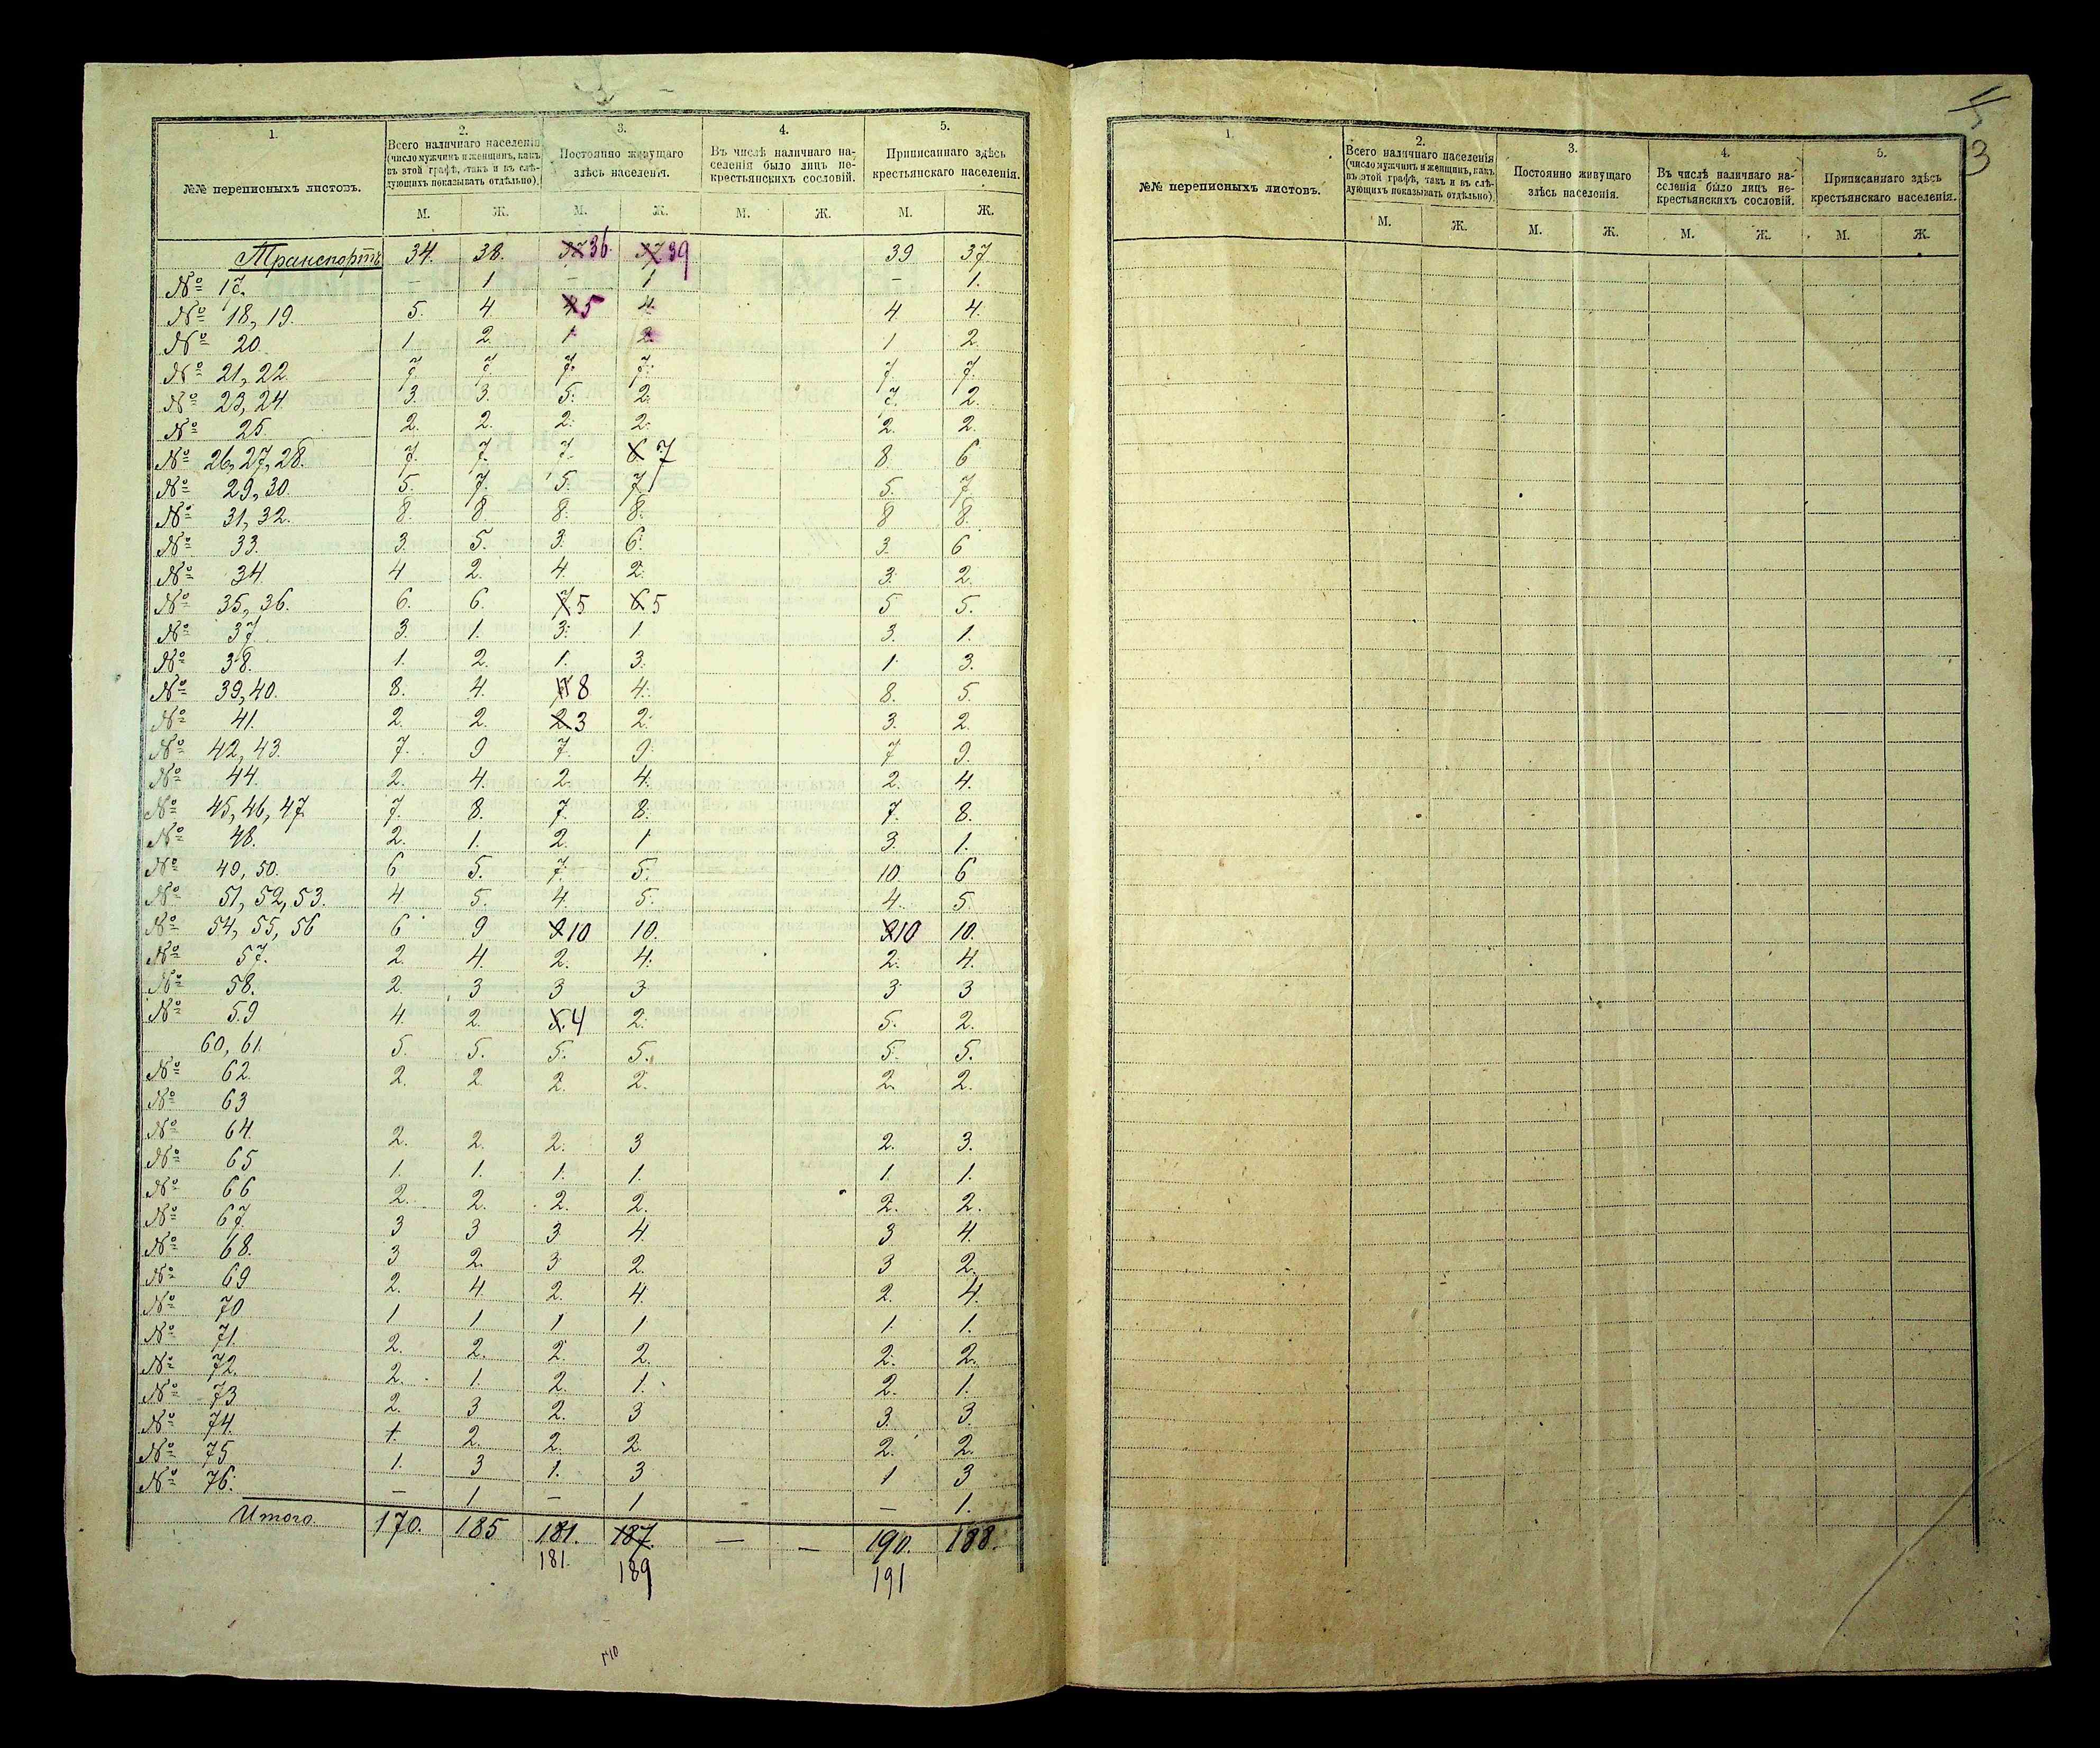 1. 2. 3. 4. 5.
№№ переписныхъ листовъ.
Всего наличнаго населенія
(число мужчинъ и женщинъ, какъ
въ этой графѣ, такъ и въ слѣ-
дующихъ показывать отдѣльно).
Постоянно живущаго
здѣсь населенія.
Въ числѣ наличнаго на-
селенія было лицъ не-
крестьянскихъ сословій.
Приписаннаго здѣсь
крестьянскаго населенія.
М. Ж. М. Ж. М. Ж. М. Ж.
Транспортъ 34. 38. 36. 39 39 37
№ 17. — 1 — 1 — 1.
№ 18, 19. 5. 4. 5 4. 4 4.
№ 20. 1 2. 1 2. 1 2.
№ 21, 22. 7. 7. 7. 7. 7. 7.
№ 23, 24. 3. 3. 5. 2. 7. 2.
№ 25. 2. 2. 2. 2. 2. 2.
№ 26, 27, 28. 7. 7. 7. 6 7 8 6
№ 29, 30. 5. 7. 5. 7 5. 7
№ 31, 32. 8. 8 8. 8. 8 8.
№ 33. 3. 5. 3. 6. 3. 6
№ 34. 4 2. 4. 2. 3. 2.
№ 35, 36. 6. 6. 7 5 6 5 5 5.
№ 37. 3. 1. 3. 1. 3. 1.
№ 38. 1. 2. 1. 3. 1. 3.
№ 39, 40. 8. 4. 8 4. 8. 5.
№ 41. 2. 2. 2 3 2. 3. 2.
№ 42, 43. 7. 9 7. 9. 7 9.
№ 44. 2. 4. 2. 4. 2. 4.
№ 45, 46, 47. 7. 8. 7. 8. 7. 8.
№ 48. 2. 1. 2. 1 3. 1.
№ 49, 50. 6 5. 7. 5. 10. 6
№ 51, 52, 53. 4 5. 4. 5. 4. 5.
№ 54, 55, 56 6 9 10 10. 10 10.
№ 57. 2. 4. 2. 4. 2. 4.
№ 58. 2. 3 3 3 3 3
№ 59 4. 2. 5. 4 2. 5. 2.
60, 61. 5. 5. 5. 5. 5. 5.
№ 62. 2. 2 2. 2. 2. 2.
№ 63
№ 64. 2. 2. 2. 3 2. 3.
№ 65 1. 1. 1. 1. 1. 1.
№ 66 2. 2. 2. 2. 2. 2.
№ 67. 3 3 3 4. 3 4.
№ 68. 3 2. 3 2. 3 2.
№ 69 2. 4 2. 4. 2. 4.
№ 70 1 1 1 1 1. 1.
№ 71. 2. 2. 2. 2. 2. 2.
№ 72. 2. 1. 2. 1. 2. 1.
№ 73 2. 3 2. 3 3. 3
№ 74. 1. 2. 2. 2. 2. 2.
№ 75 1. 3 1. 3 1 3
№ 76. — 1 — 1 — 1.
Итого. 170. 185 181. 187. — — 190. 188.
181. 189 191
3
1. 2. 3. 4. 5.
№№ переписныхъ листовъ.
Всего наличнаго населенія
(число мужчинъ и женщинъ, какъ
въ этой графѣ, такъ и въ слѣ-
дующихъ показывать отдѣльно).
Постоянно живущаго
здѣсь населенія.
Въ числѣ наличнаго на-
селенія было лицъ не-
крестьянскихъ сословій.
Приписаннаго здѣсь
крестьянскаго населенія.
М. Ж. М. Ж. М. Ж. М. Ж.